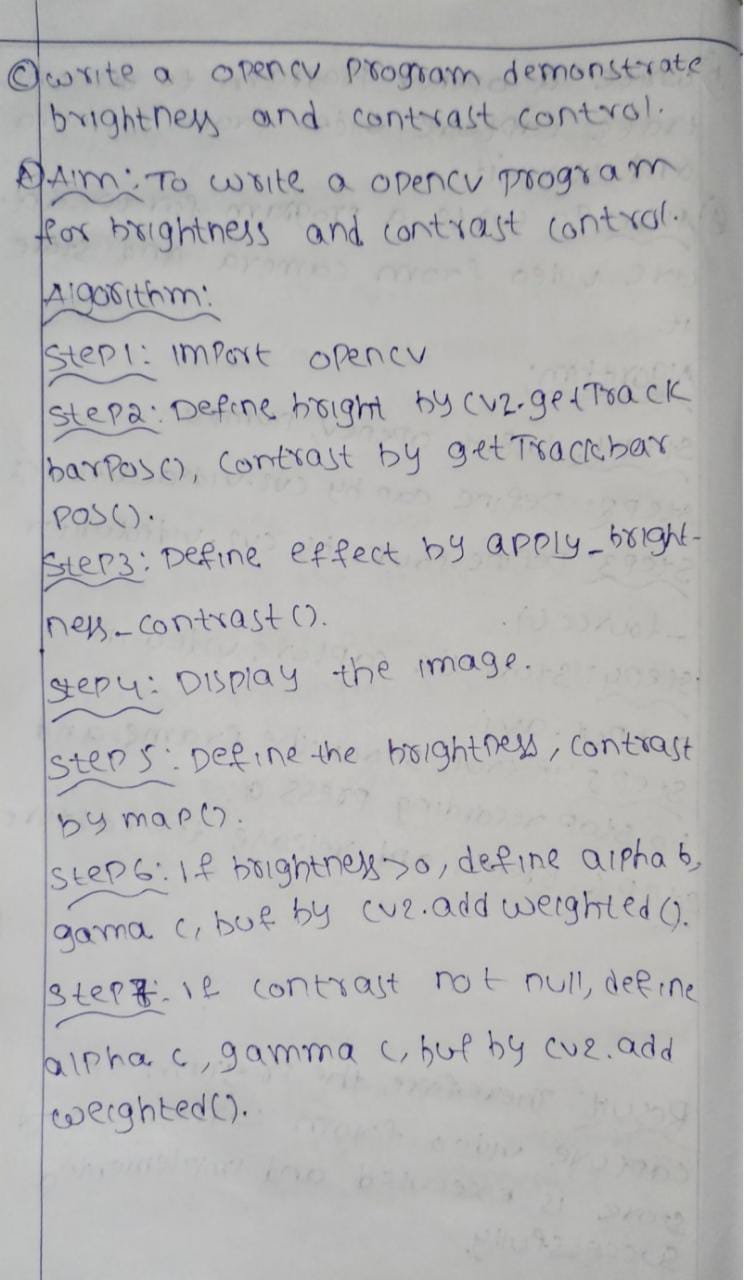 C) write a opencv program demonstrate
brightness and contrast control.
A) Aim: To write a opencv program
for brightness and contrast control.
Algorithm:
Step1: import opencv
Step2: Define bright by cv2.getTrack
barPos(), contrast by getTrackbar
pos().
Step3: Define effect by apply_bright-
ness_contrast().
Step4: Display the image.
Step5: Define the brightness, contrast
by map().
Step6: If brightness>0, define alpha b,
gama c, buf by cv2.add weighted().
Step7: if contrast not null, define
alpha c, gamma c, buf by cv2.add
weighted().